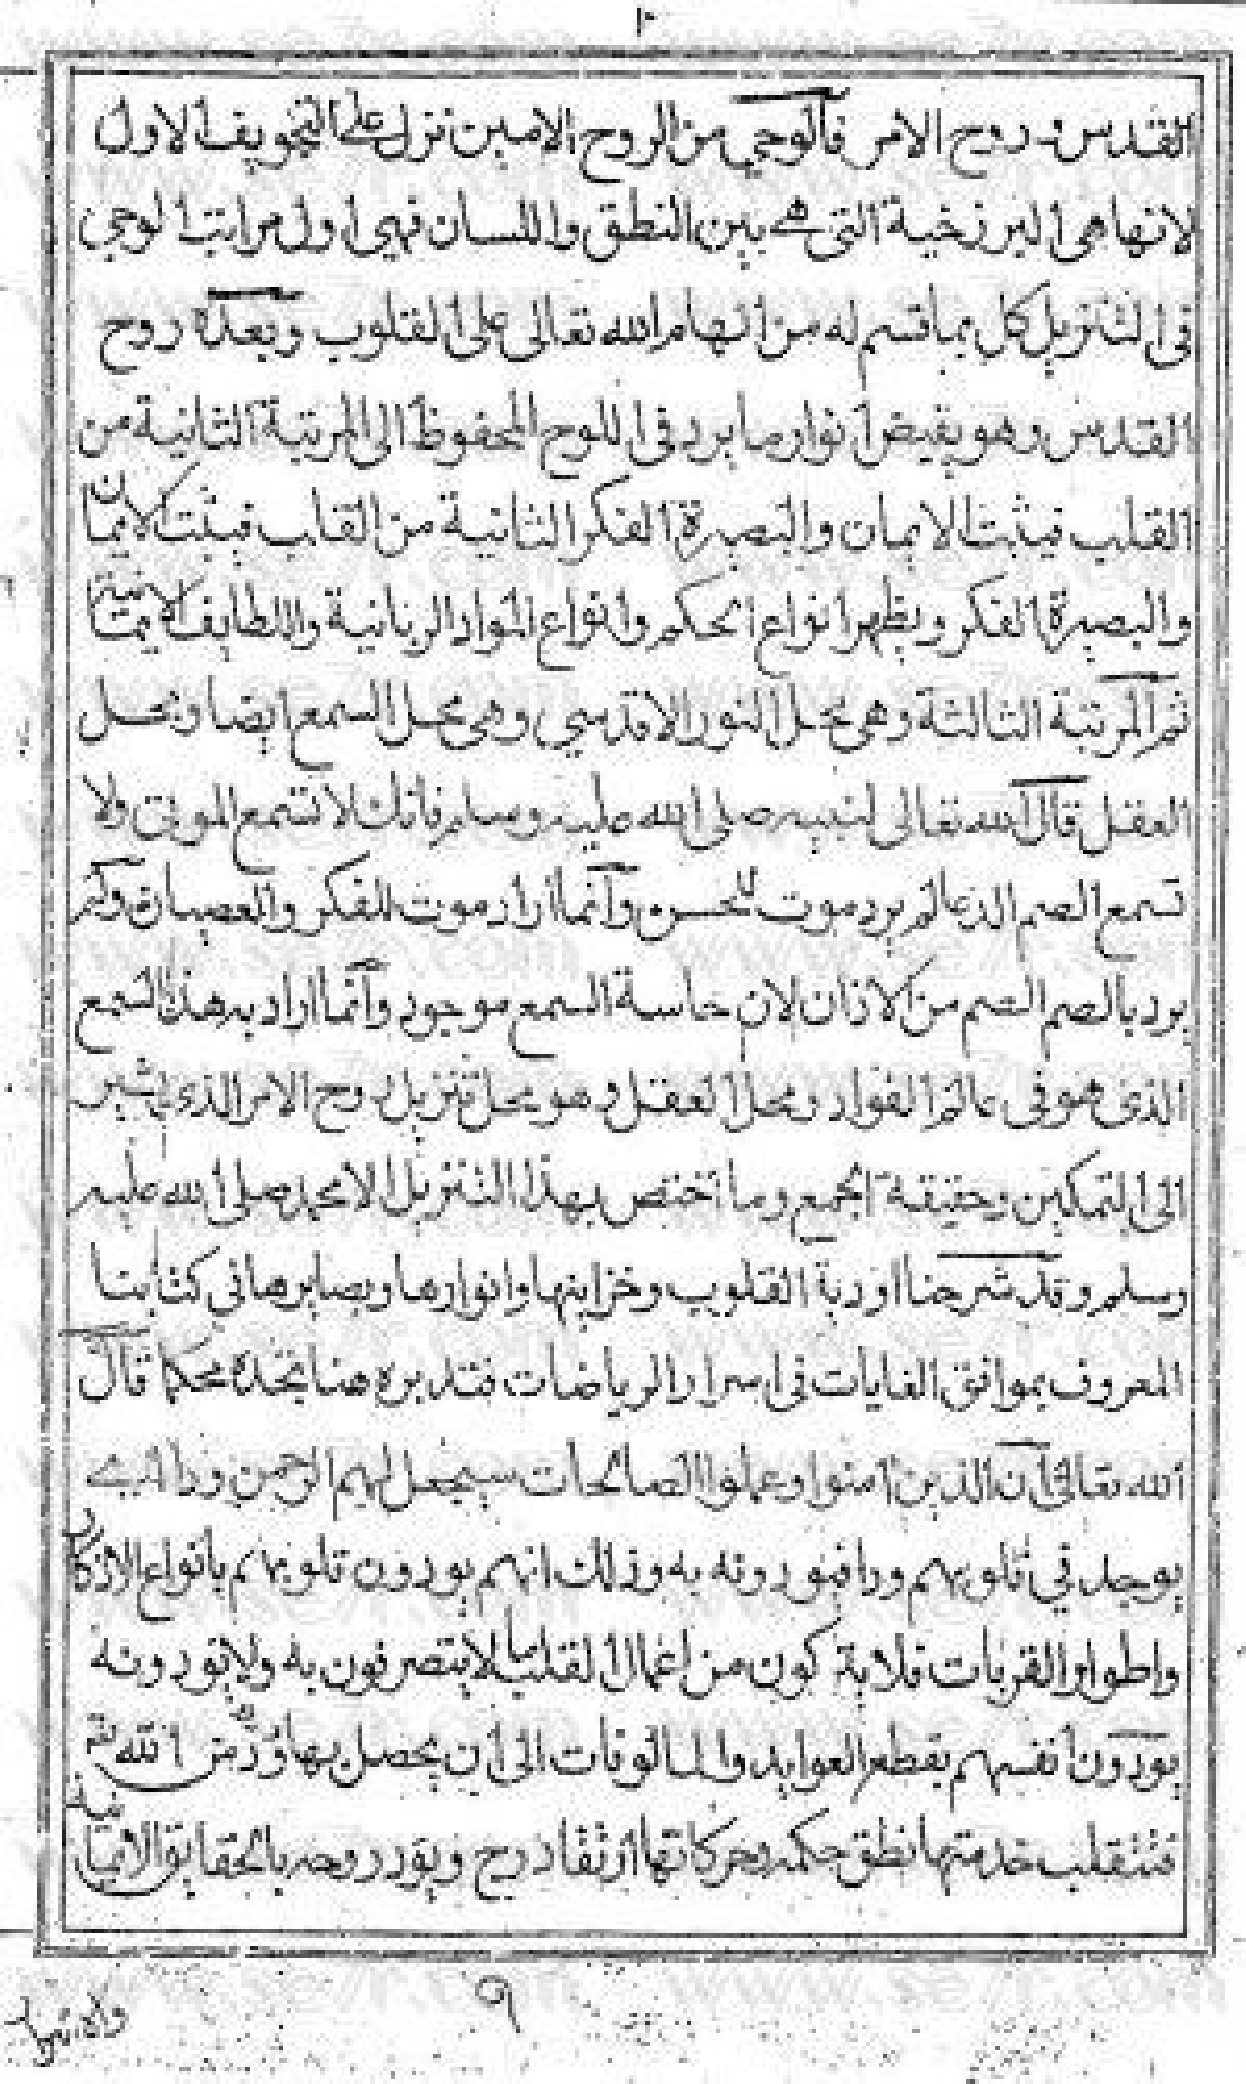 القدس وروح الامر فالوحي من الروح الامين نزل على التجويف الاول
لانها هى البرزخية التى هى بين النطق واللسان فهى اول مراتب الوحي
فى التنزيل كل بما قسم له من الهام الله تعالى على القلوب وبعده روح
القدس وهو يفيض انوار ما يرد فى اللوح المحفوظ الى المرتبة الثانية من
القلب فيثبت الايمان والبصيرة الفكر الثانية من القلب فيثبت الايمان
والبصيرة الفكر ويظهر انواع الحكم وانواع المواد الربانية واللطايف الايمانية
ثم المرتبة الثالثة وهى محل النور الاقدسي وهى محل السمع ايضا ومحل
العقل قال الله تعالى لنبيه صلى الله عليه وسلم فانك لا تسمع الموتى ولا
تسمع الصم الدعا لم يرد موت الحس وانما اراد موت الفكر والعصيان ولم
يرد بالصم الصم من الاذان لان حاسة السمع موجود وانما اراد به هذا السمع
الذى هو فى عالم الفواد ومحل العقل وهو محل تنزيل روح الامر الذى يشير
الى التمكين وحقيقة الجمع وما اختص بهذا التنزيل الا محمد صلى الله عليه
وسلم وقد شرحنا اودية القلوب وخزاينها وانوارها وبصايرها فى كتابنا
المعروف بمواقق الغايات فى اسرار الرياضات فتدبره هنا تجده محكما قال
الله تعالى ان الذين امنوا وعملوا الصالحات سيجعل لهم الرحمن ودا اى
يوجد في قلوبهم ودا فيوردونه به وذلك انهم يوردون قلوبهم بانواع الاذكار
واطوار القربات فلا يتركون من اعمال القلب ما لا يتصرفون به ولا يوردونه
يوردون انفسهم بقطع العوايد والمالوفات الى ان يحصل بها ود من الله تعم
فتنقلب خدمتها نطق حكمه وحركاتها ارتقا درج ويورد روحه بالحقايق الايمانية
٩